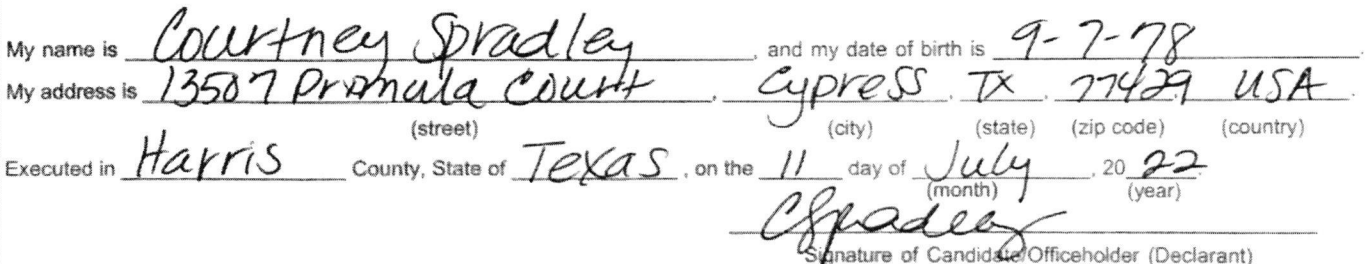 My name is Courtney Spradley, and my date of birth is 9-7-78.
My address is 13507 Primula Court, Cypress, TX, 77429 USA.
(street) (city) (state) (zip code) (country)
Executed in Harris County, State of Texas, on the 11 day of July, 20 22.
(month) (year)
CSpradley
Signature of Candidate/Officeholder (Declarant)